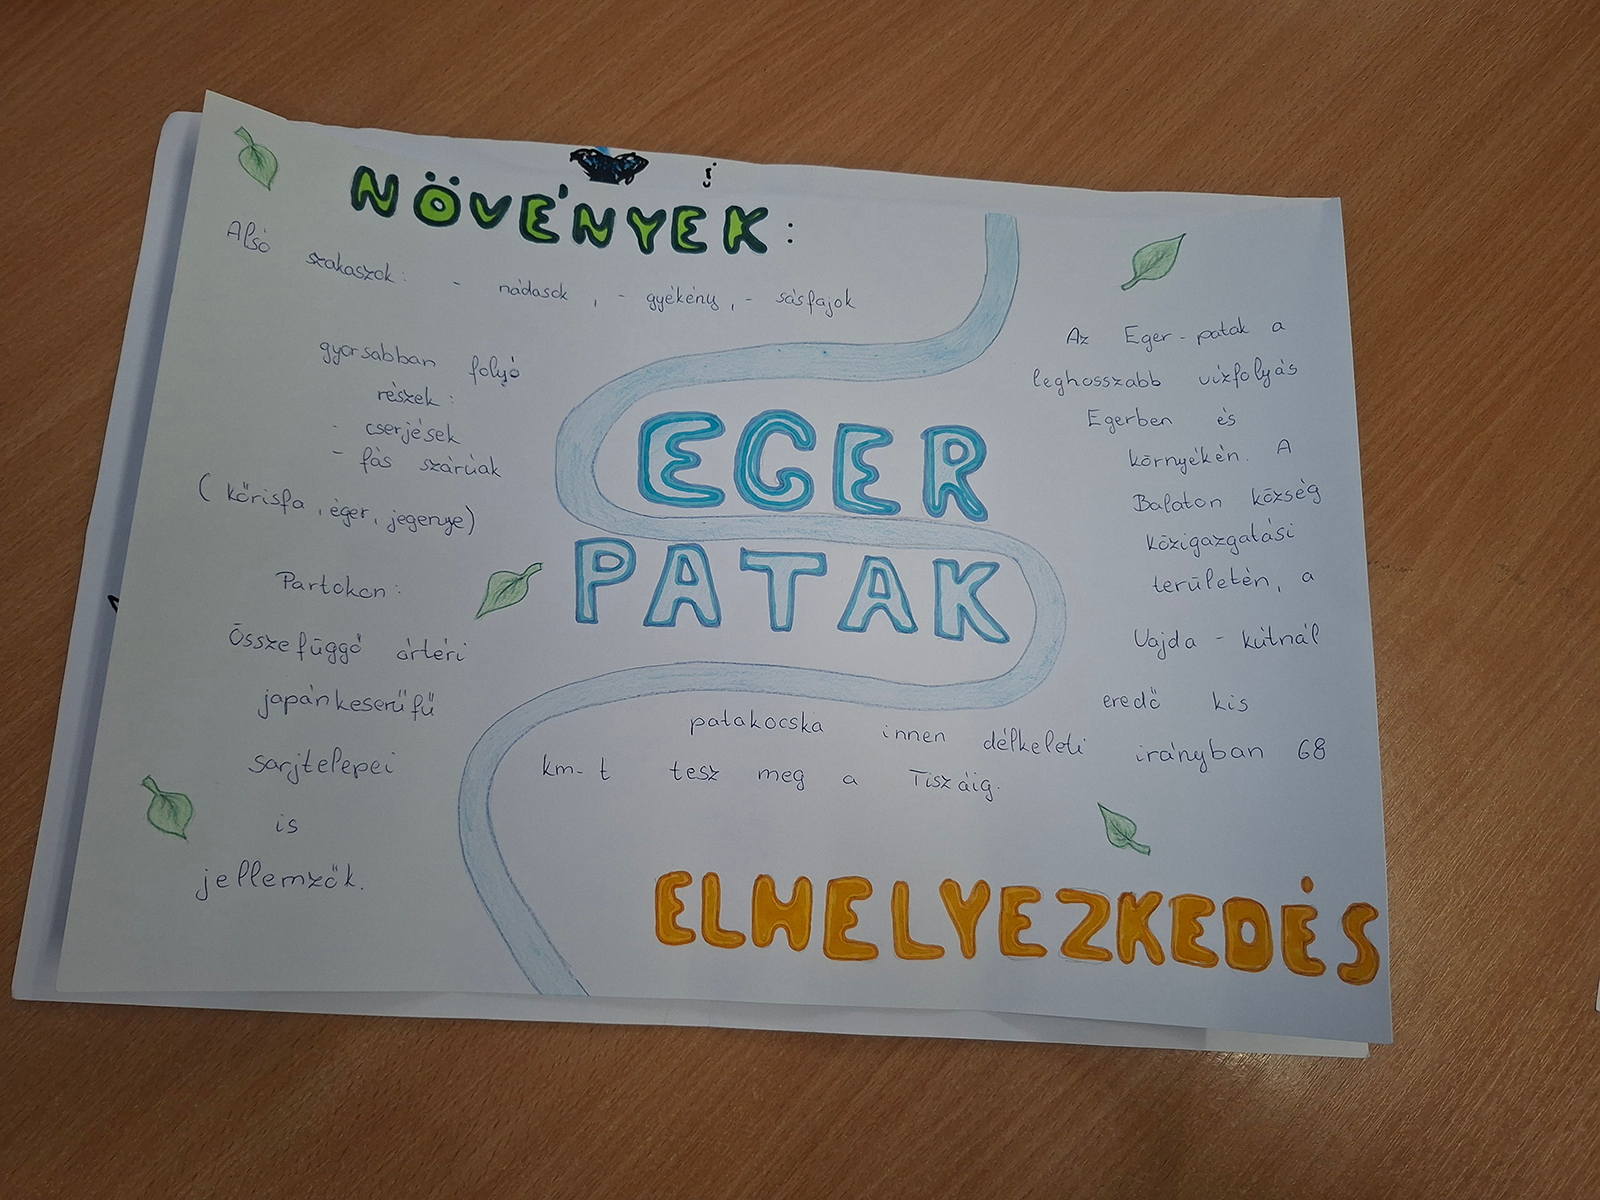 NÖVÉNYEK:
Alsó szakaszok: - nádasok, - gyékény, - sásfajok
gyorsabban folyó
részek:
- cserjések
- fás szárúak
(kőrisfa, éger, jegenye)
Partokon:
Összefüggő ártéri
japánkeserűfű
sarjtelepei
is
jellemzők.
EGER
PATAK
Az Eger-patak a
leghosszabb vízfolyás
Egerben és
környékén. A
Balaton község
közigazgatási
területén, a
Vajda-kútnál
eredő kis
patakocska innen délkeleti irányban 68
km-t tesz meg a Tiszáig.
ELHELYEZKEDÉS